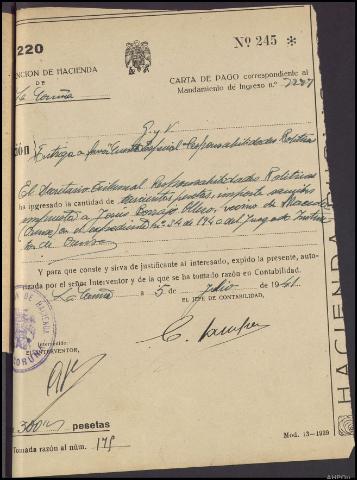 220
Nº 245 *
CION DE HACIENDA
DE
La Coruña
CARTA DE PAGO correspondiente al
Mandamiento de Ingreso n.º
G y V
Entrega a
Especial-Responsabilidades Políticas
El Secretario Tribunal Responsabilidades Políticas
ha ingresado la cantidad de pesetas, importe sanción
impuesta a vecino de
en el expediente nº 34 de 1940 del Juzgado Instruc
tor de Orense
Y para que conste y sirva de justificante al interesado, expido la presente, auto-
rizada por el señor Interventor y de la que se ha tomado razón en Contabilidad.
La Coruña a 5 de Julio de 1941
EL JEFE DE CONTABILIDAD,
Intervenido:
EL INTERVENTOR,
DE HACIENDA
CORUÑA
300 pesetas
Tomada razón al núm. 175
Mod. 13-1939
HACIENDA
AHPOu